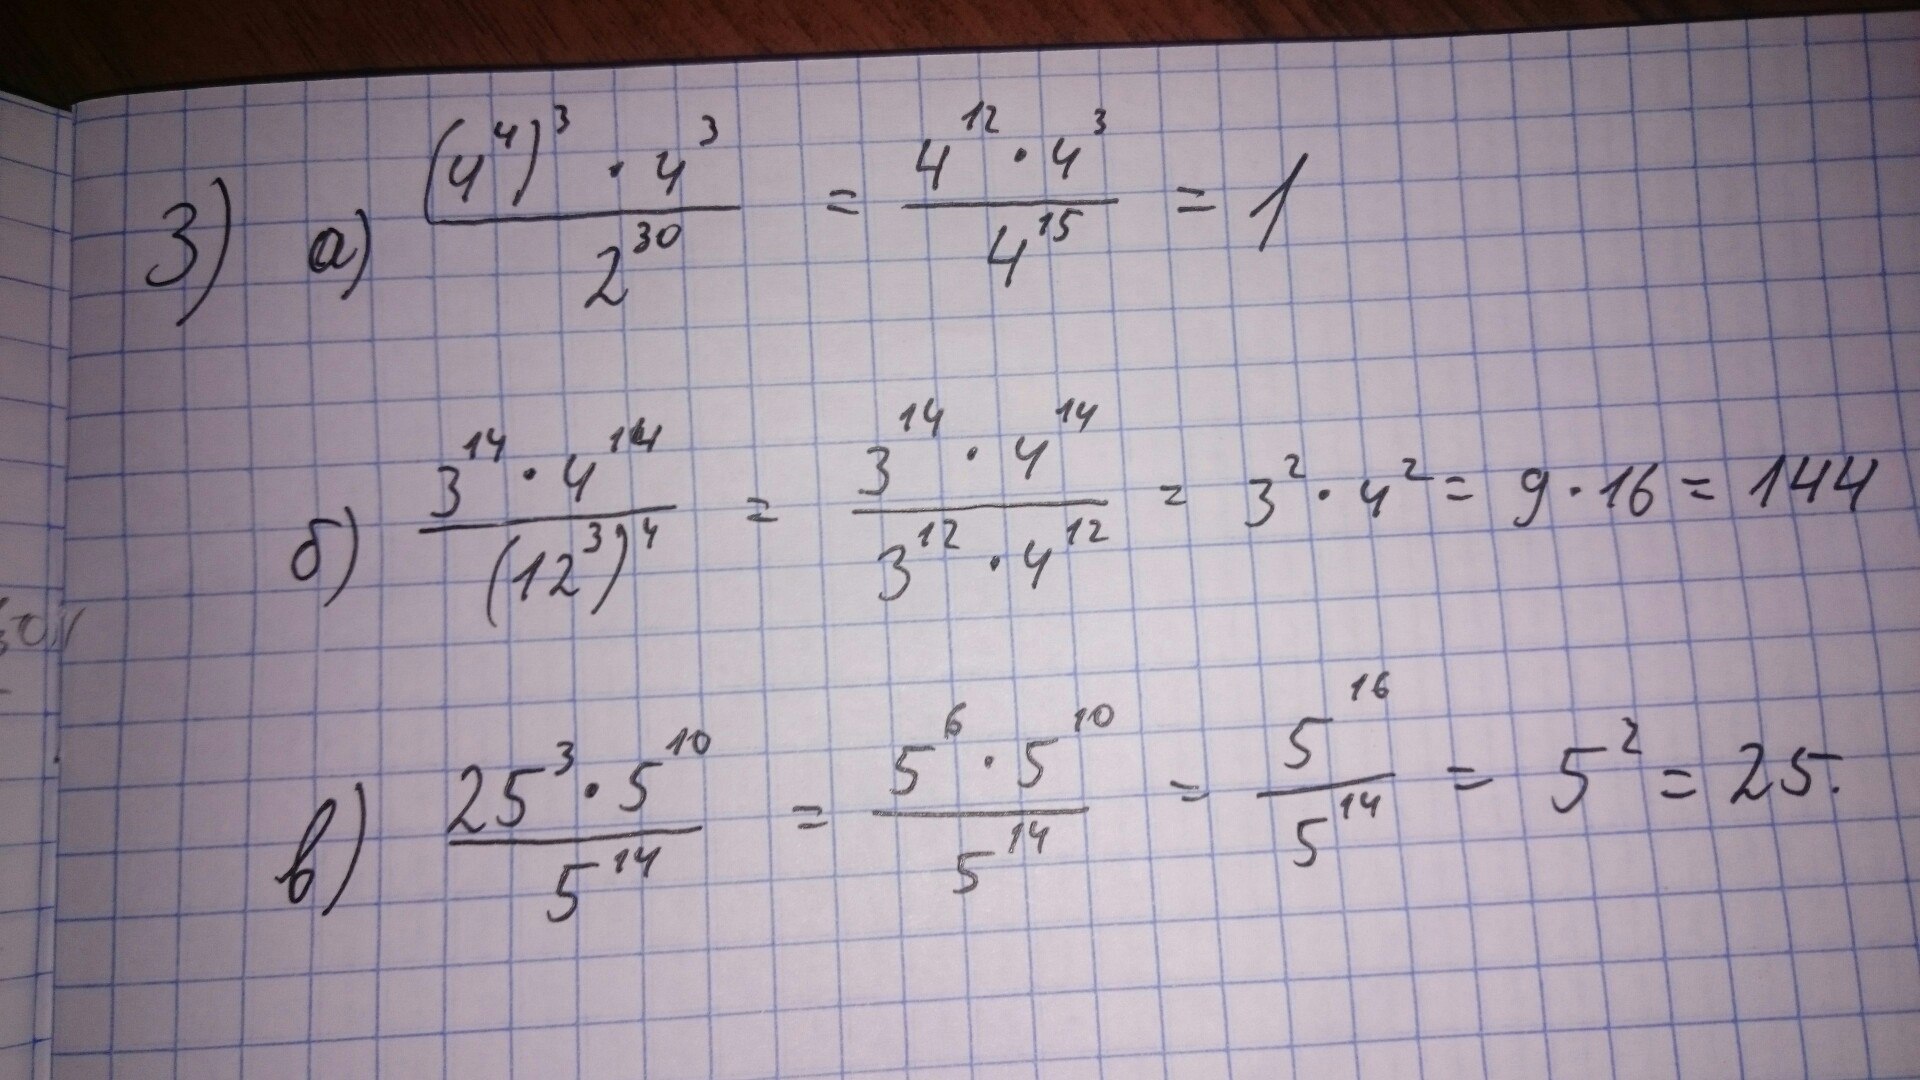 3) а) ((4^4)^3 · 4^3)/(2^30) = (4^12 · 4^3)/(4^15) = 1
б) (3^14 · 4^14)/((12^3)^4) = (3^14 · 4^14)/(3^12 · 4^12) = 3^2 · 4^2 = 9 · 16 = 144
в) (25^3 · 5^10)/(5^14) = (5^6 · 5^10)/(5^14) = (5^16)/(5^14) = 5^2 = 25.